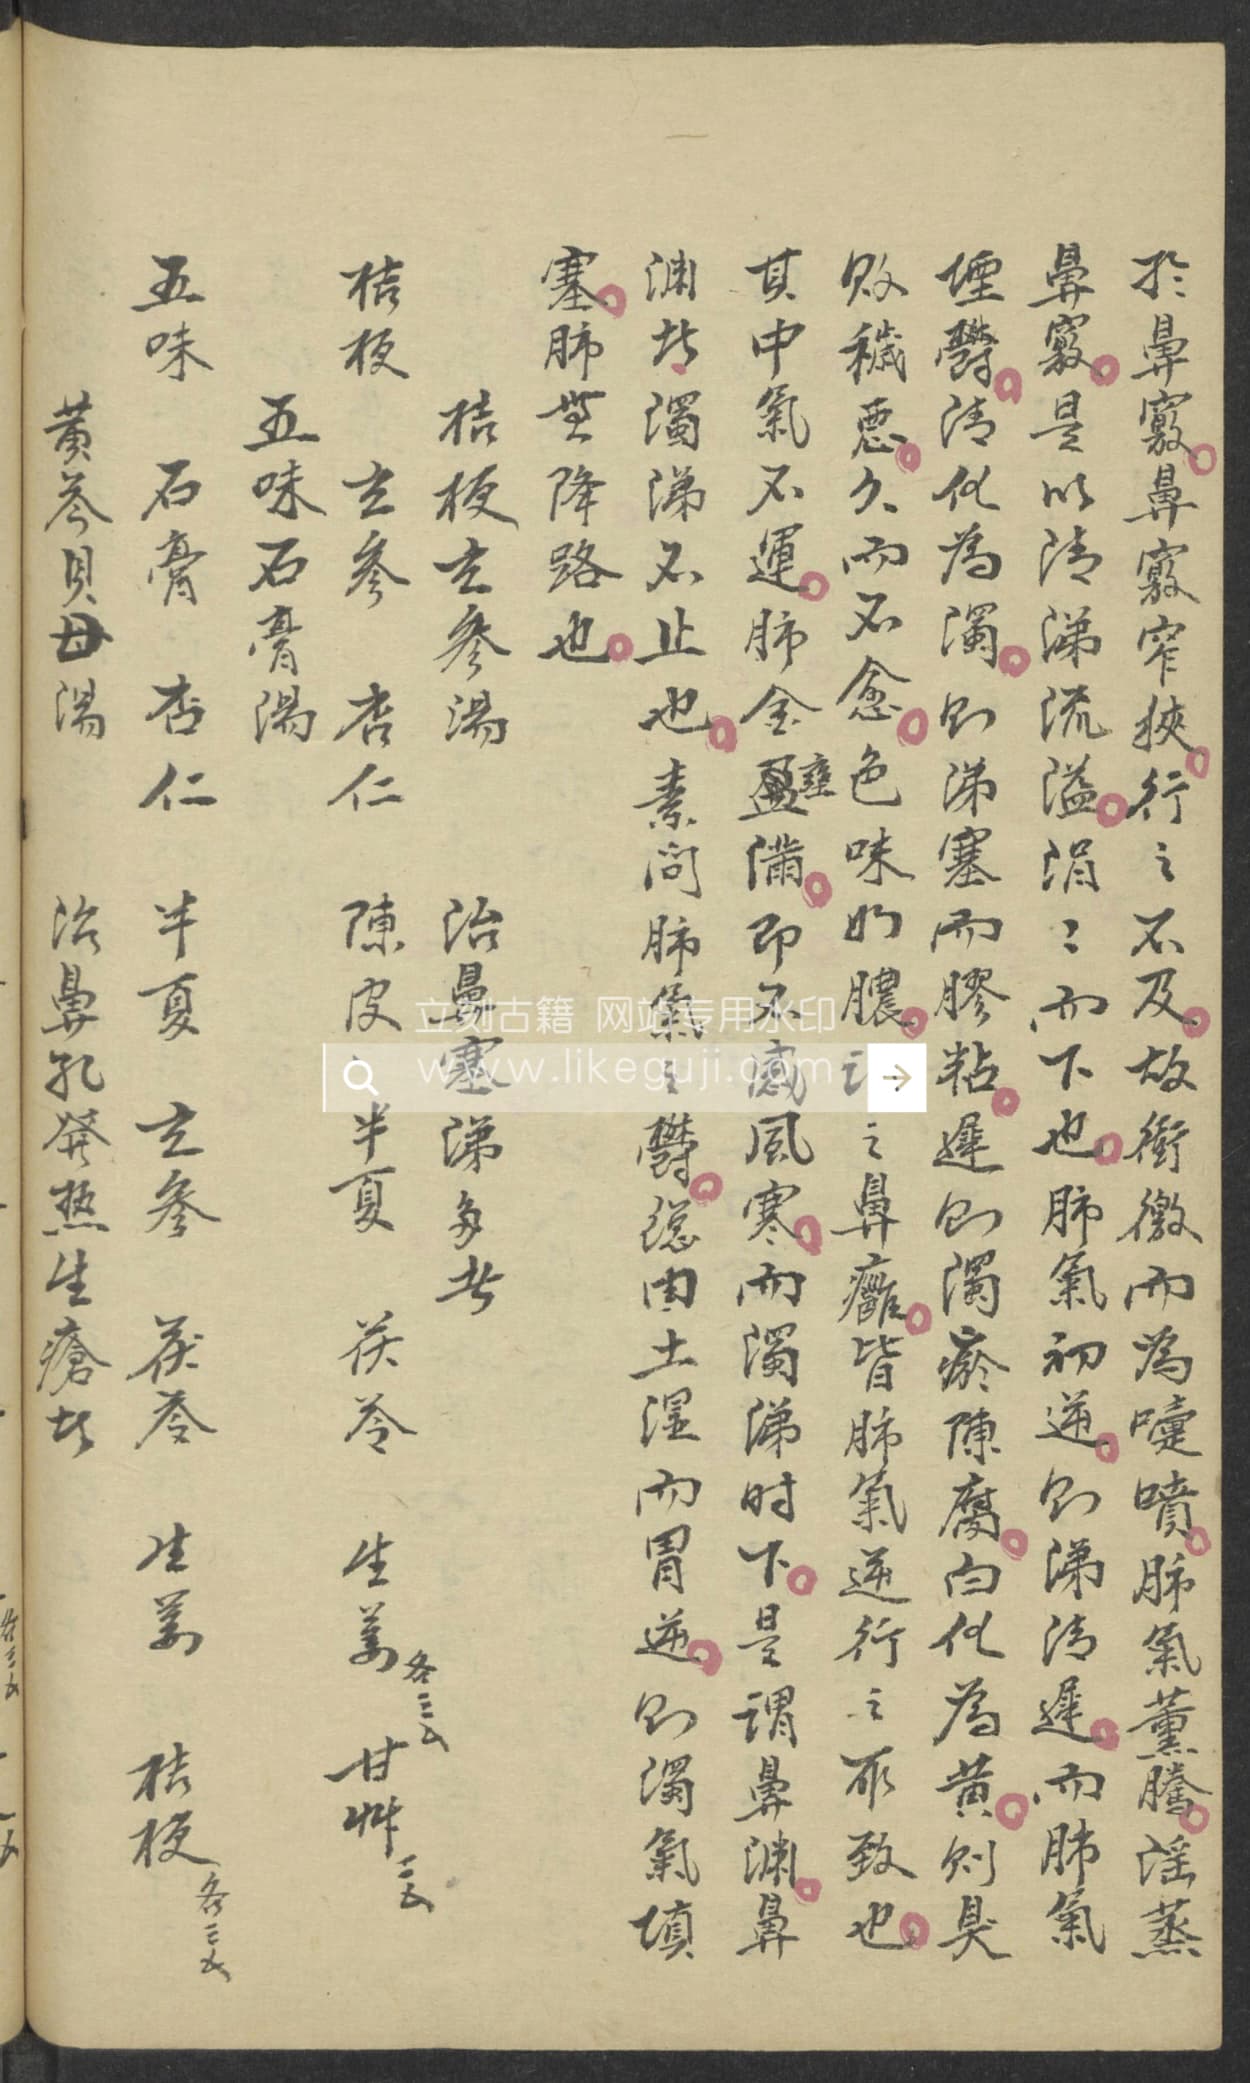 於鼻竅鼻竅窄挾行之不及故衝激而為嚏噴肺氣薰騰淫蒸
鼻竅是以清涕流溢涓〻而下也肺氣初逆則涕清遲而肺氣
堙鬱清化為濁則涕塞而膠粘遲則濁瘀陳腐白化為黃則臭
敗穢惡久而不愈色味如膿之鼻癰皆肺氣逆行之所致也
其中氣不運肺金壅滿即不感風寒而濁涕时下是謂鼻淵鼻
淵者濁涕不止也素问肺氣之鬱總由土濕而胃逆則濁氣填
塞肺無降路也
桔梗玄參湯 治鼻塞涕多者
桔梗 玄參 杏仁 陳皮 半夏 茯苓 生姜各三錢 甘艸二錢
五味石膏湯
五味 石膏 杏仁 半夏 玄參 茯苓 生姜 桔梗各三錢
黃芩貝母湯 治鼻孔發热生瘡者
立刻古籍 网站专用水印
www.likeguji.com